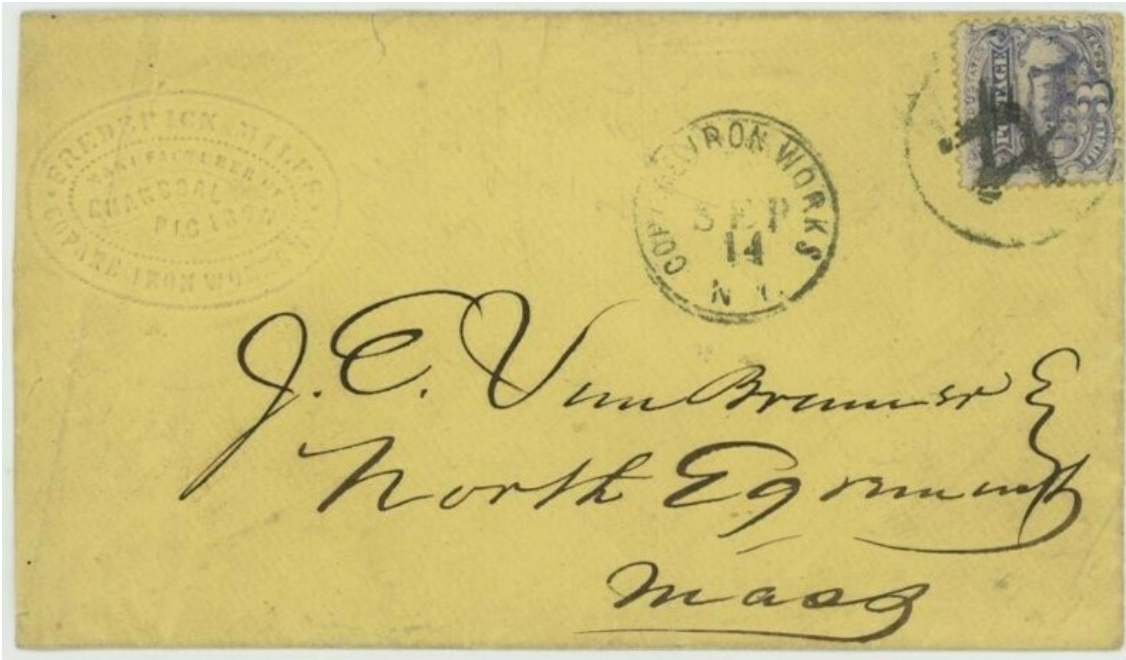 FREDERICK MILES
MANUFACTURER OF
CHARCOAL
PIG IRON
COPAKE IRON WORKS
COPAKE IRON WORKS
SEP
14
N.Y.
POSTAGE
3
J. E. Van Brunser Esq
North Egremont
Mass